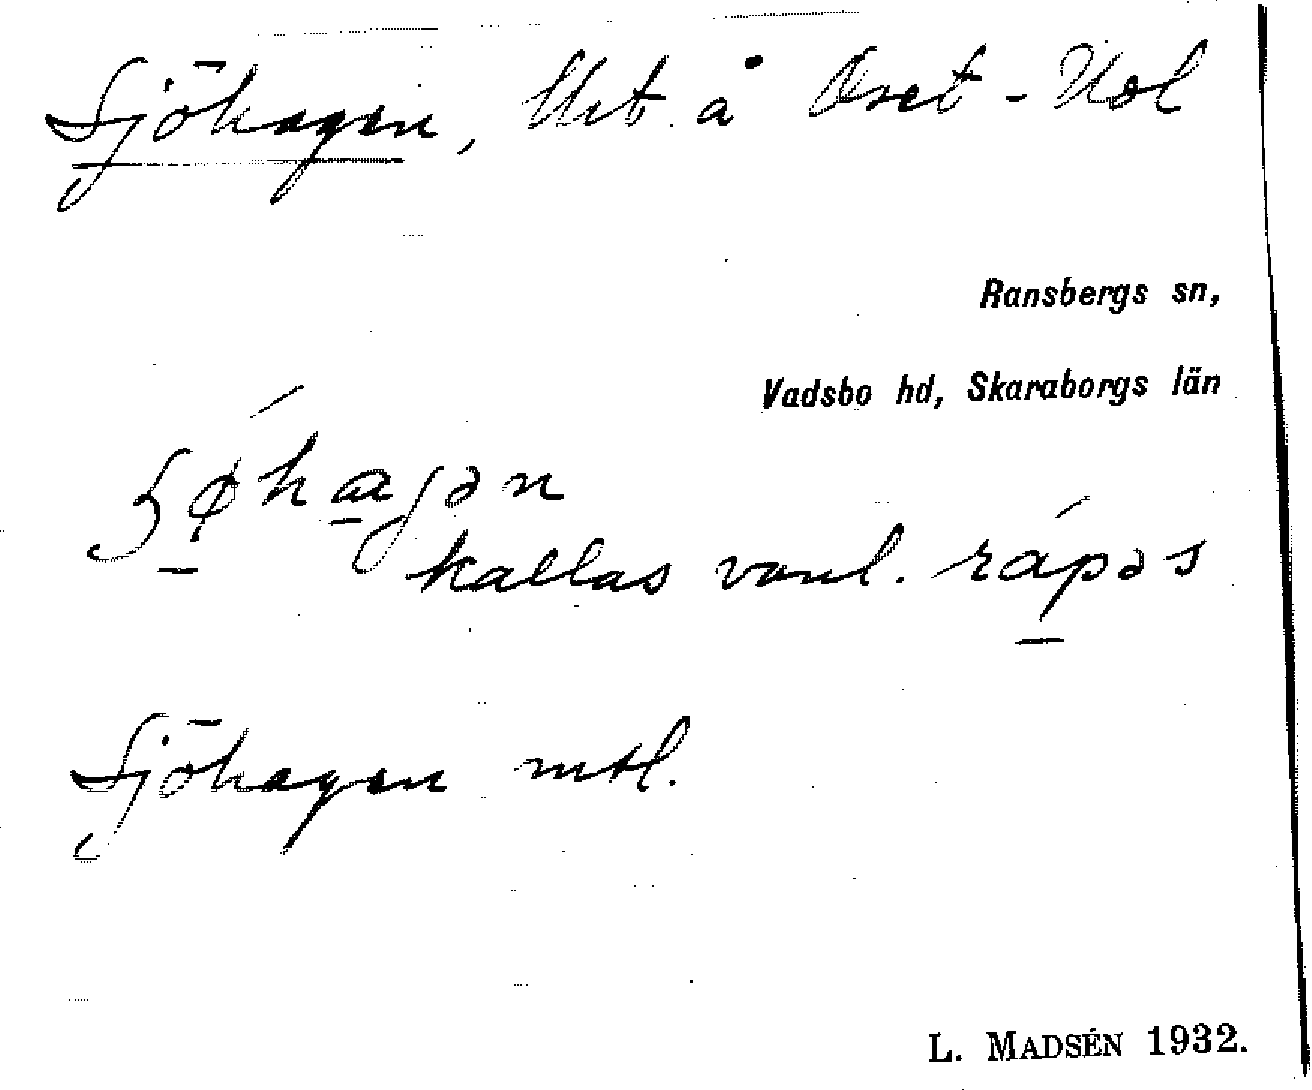 Sjöhagen, Utt. å Oset-Udl
Ransbergs sn,
Vadsbo hd, Skaraborgs län
kallas vanl. rápəs
Sjöhagen mtl.
L. MADSÉN 1932.